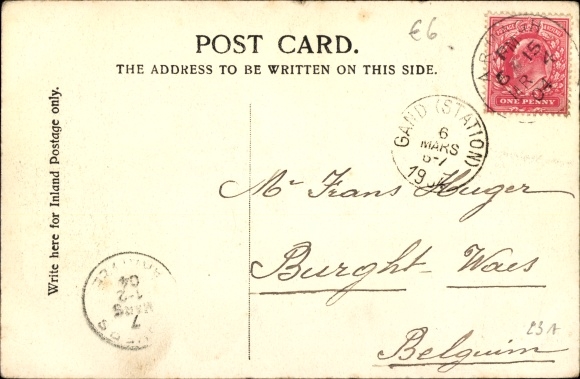 £6
POST CARD.
THE ADDRESS TO BE WRITTEN ON THIS SIDE.
Write here for Inland Postage only.
ONE PENNY
GAND (STATION)
6
MARS
6-7
Mr Frans Huger
Burght-Waes
Belguim
23A
ARRIVÉE
04
1-2
MARS
7